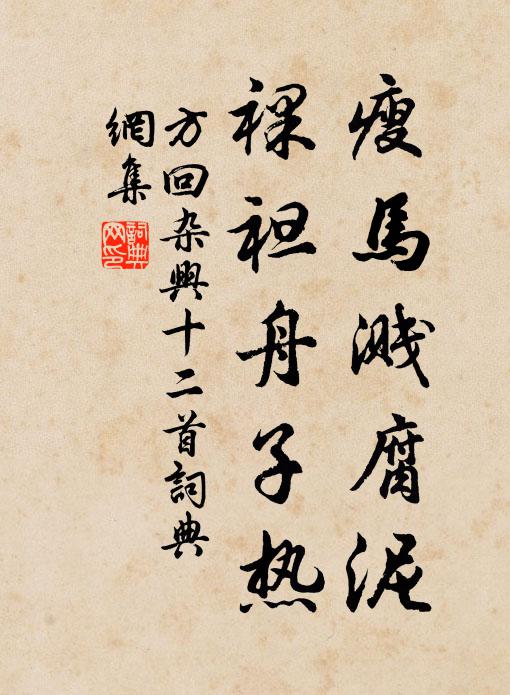 瘦馬溅腐泥
裸袒舟子热
方回杂興十二首詞典
網集
詞典
网印